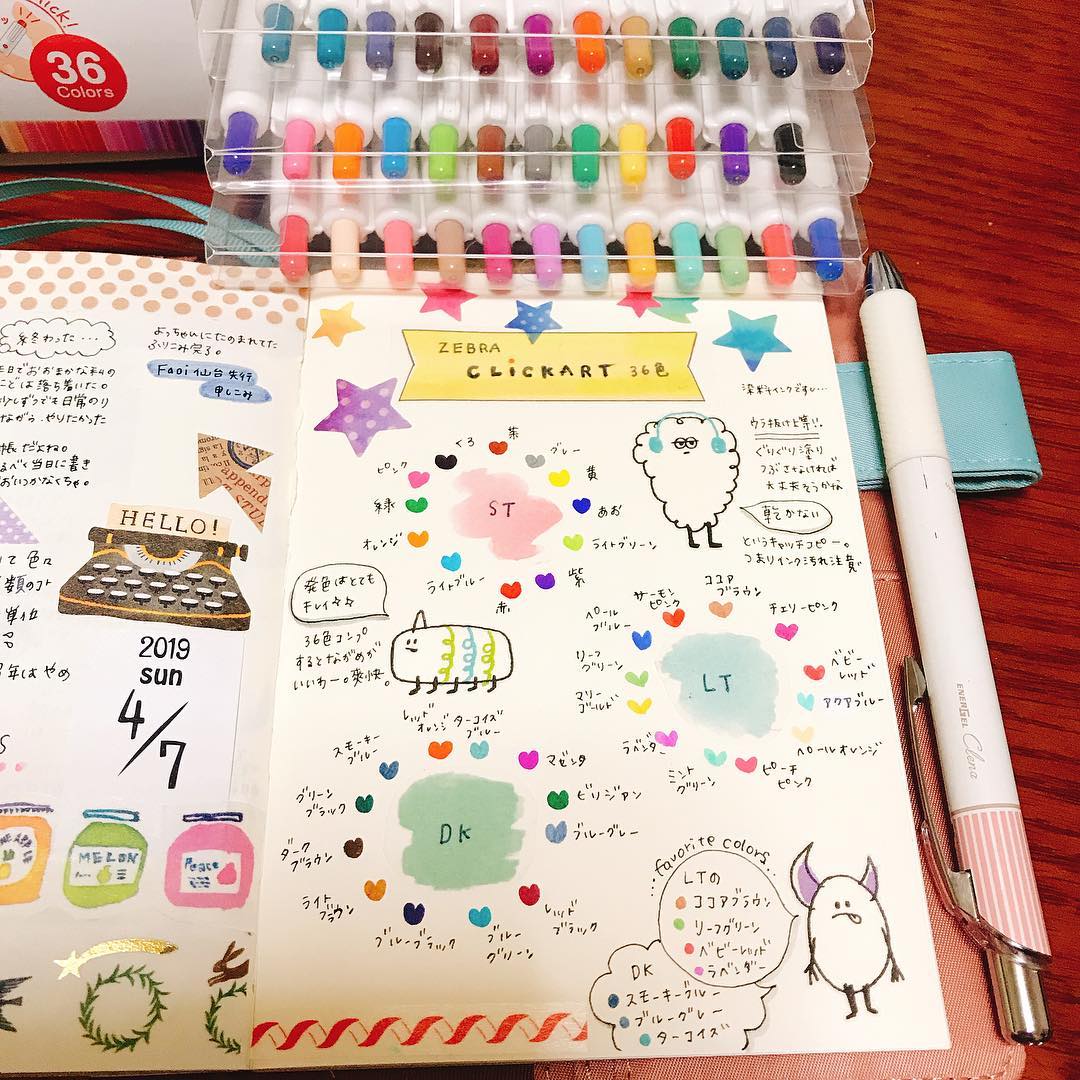 36
Colors
終わった…
よっちゃんにたのまれてた
ふりこみ完了。
Faoi仙台先行
申しこみ
日でおおまかな私の
ことは落ち着いた。
少しずつでも日常のり
ながら、やりたかった
帳だよね。
るべく当日に書き
おいつかなくちゃ。
appen
HELLO!
て色々
類のノト
単位
年はやめ
2019
sun
4/7
MELON
Peace
ZEBRA
CLiCKART 36色
染料インクですし…
ウラ抜け上等!!
ぐりぐり塗り
つぶさなければ
大丈夫そうかな
乾かない
というキャッチコピー。
つまりインク汚れ注意
ST
くろ
茶
グレー
黄
あお
ライトグリーン
紫
赤
ライトブルー
オレンジ
緑
ピンク
発色はとても
キレイ☆☆
36色コンプ
するとながめが
いいわー。爽快。
LT
サーモン
ピンク
ココア
ブラウン
チェリーピンク
ベビー
レッド
アクアブルー
ペールオレンジ
ピーチ
ピンク
ミント
グリーン
ラベンダー
マリー
ゴールド
リーフ
グリーン
ペール
ブルー
DK
レッド
オレンジ
ターコイズ
ブルー
マゼンタ
ビリジアン
ブルーグレー
レッド
ブラック
ブルー
グリーン
ブルーブラック
ライト
ブラウン
ダーク
ブラウン
グリーン
ブラック
スモーキー
ブルー
...favorite colors...
LTの
ココアブラウン
リーフグリーン
ベビーレッド
ラベンダー
DK
スモーキーブルー
ブルーグレー
ターコイズ
ENERGEL Clena